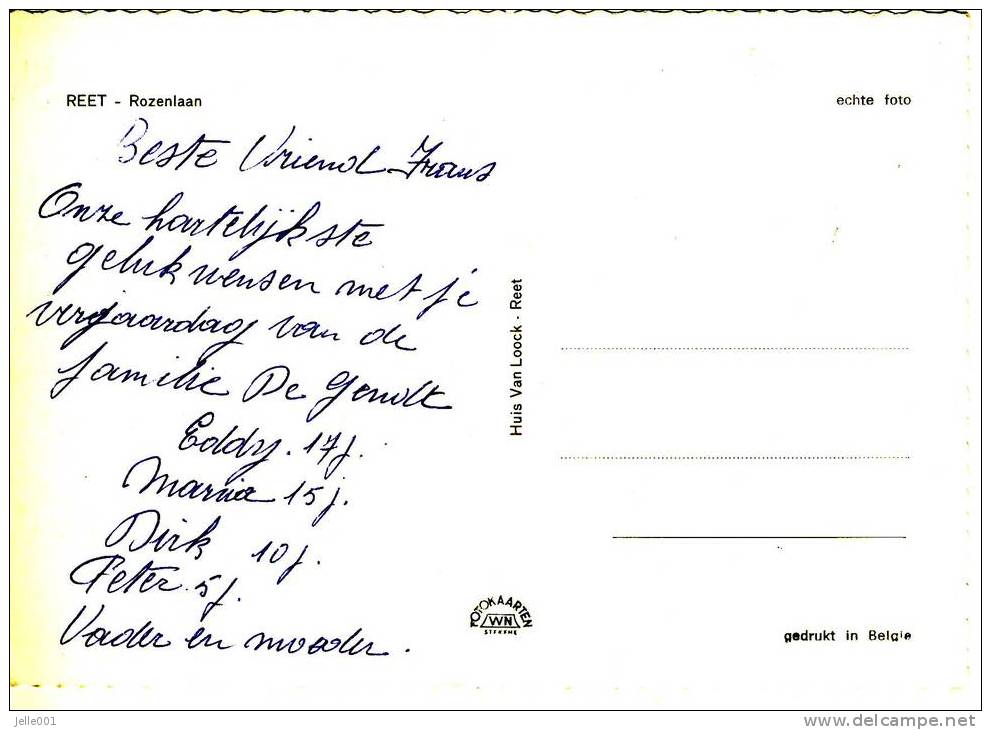 REET - Rozenlaan
echte foto
Beste Vriend Frans
Onze hartelijkste
gelukwensen met je
verjaardag van de
familie De Gendt
Eddy. 17 j.
Marnia 15 j.
Dirk 10 j.
Peter. 5 j.
Vader en moeder.
Huis Van Loock - Reet
FOTOKAARTEN
WN
STEKENE
gedrukt in Belgie
jelle001
www.delcampe.net